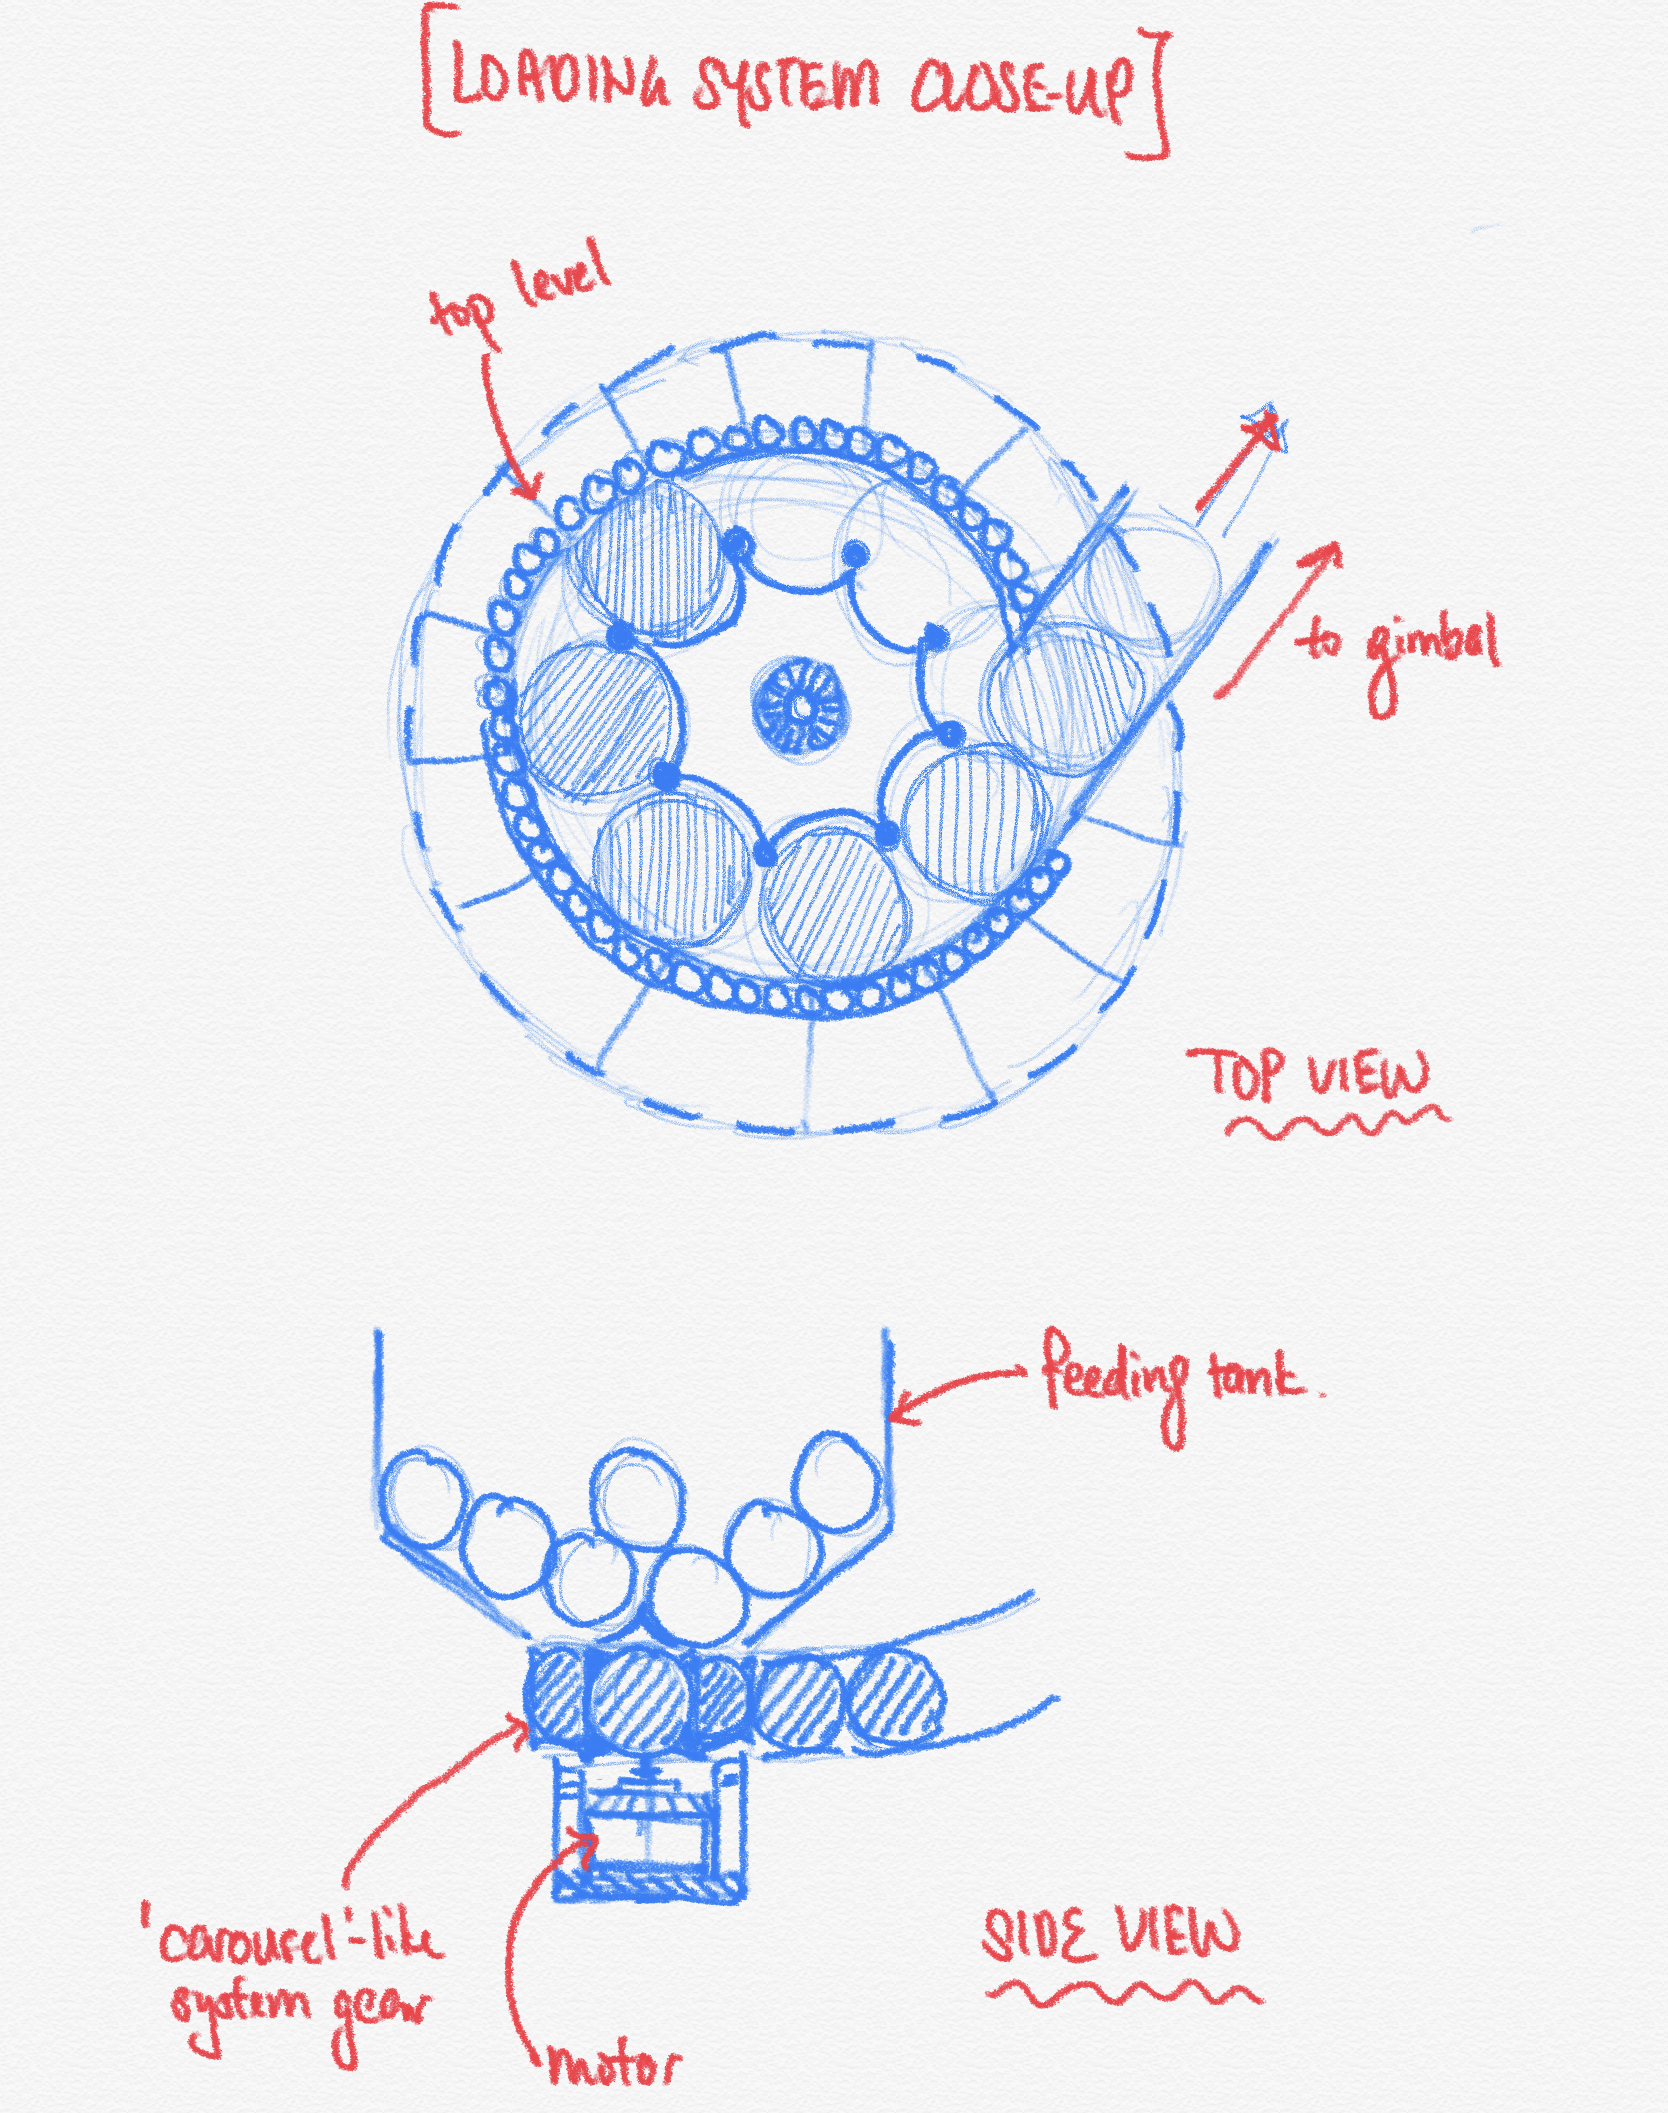 [LOADING SYSTEM CLOSE-UP]
top level
to gimbal
TOP VIEW
feeding tank.
'carousel'-like
system gear
motor
SIDE VIEW